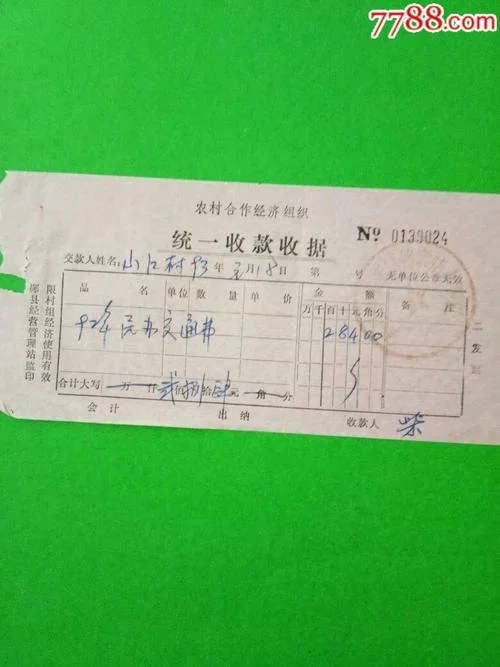 7788.com
农村合作经济组织
统一收款收据
№ 0139024
交款人姓名:山口村 93年 3月18日 第 号 无单位公章无效
品 名 单位 数量 单价 金额 备注
万千百十元角分
92年民办交通费 28400
合计大写 万 仟 贰佰捌拾肆元 角 分
会计 出纳 收款人 柴
限村组经济使用有效
县经营管理站监印
二发票